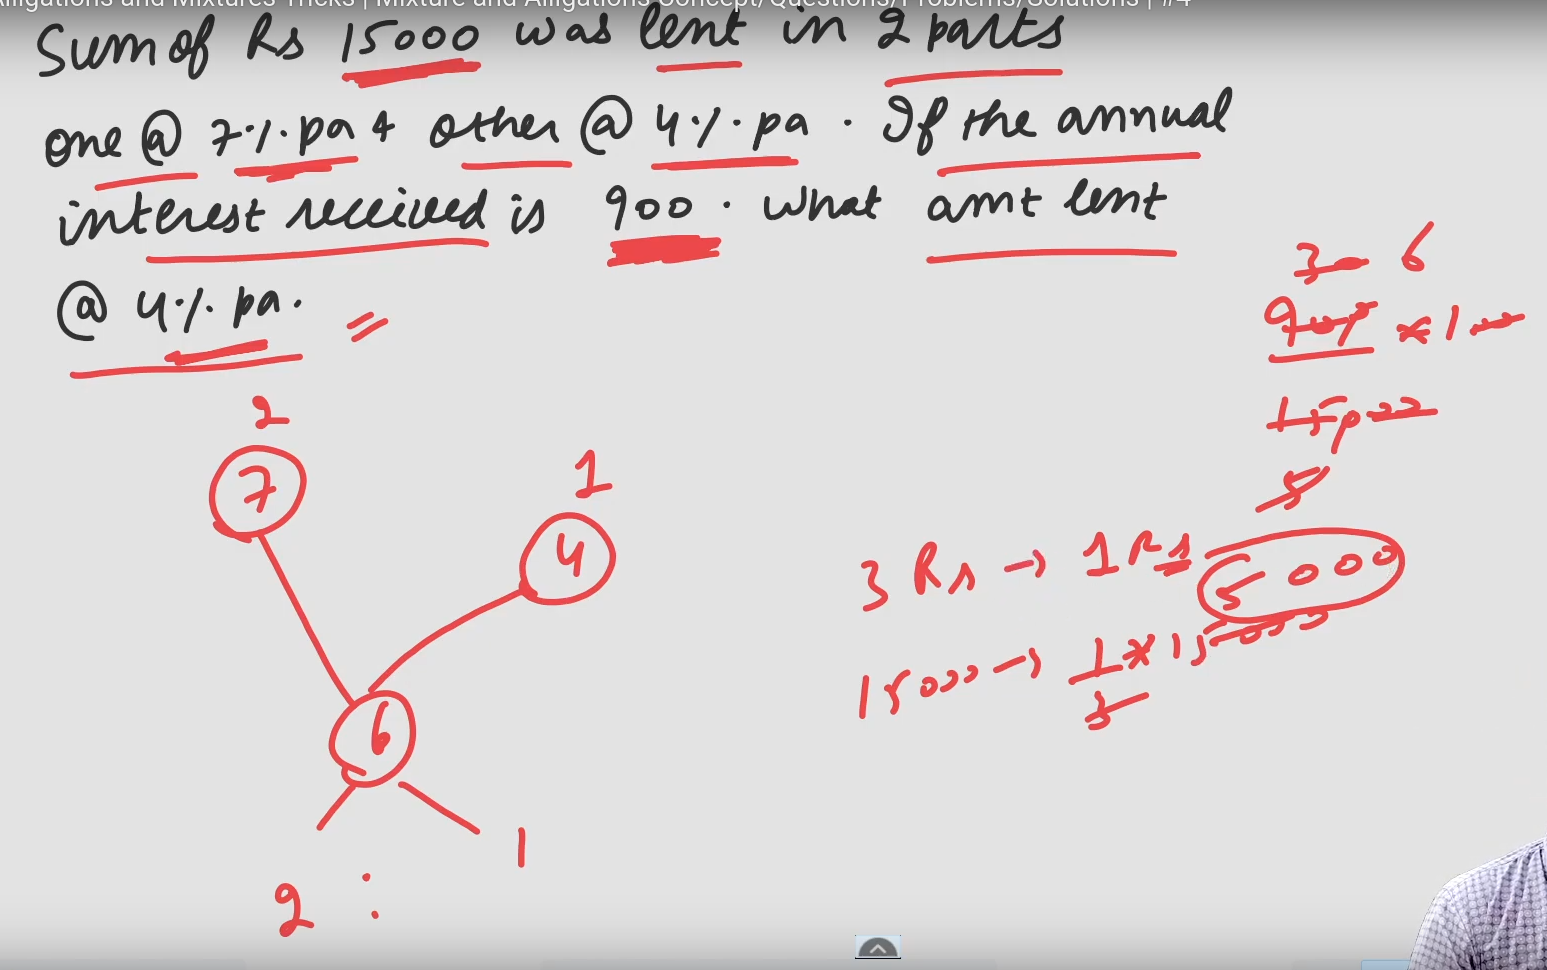 Alligations and Mixtures Tricks | Mixture and Alligations Concept/Questions/Problems/Solutions | #4
Sum of Rs 15000 was lent in 2 parts
one @ 7%. pa & other @ 4%. pa. If the annual
interest received is 900. What amt lent
@ 4%. pa.
3 6
900 * 100
15000
5
2
7
1
4
6
2 : 1
3 Rs → 1 Rs 5000
15000 → 1/3 * 15000